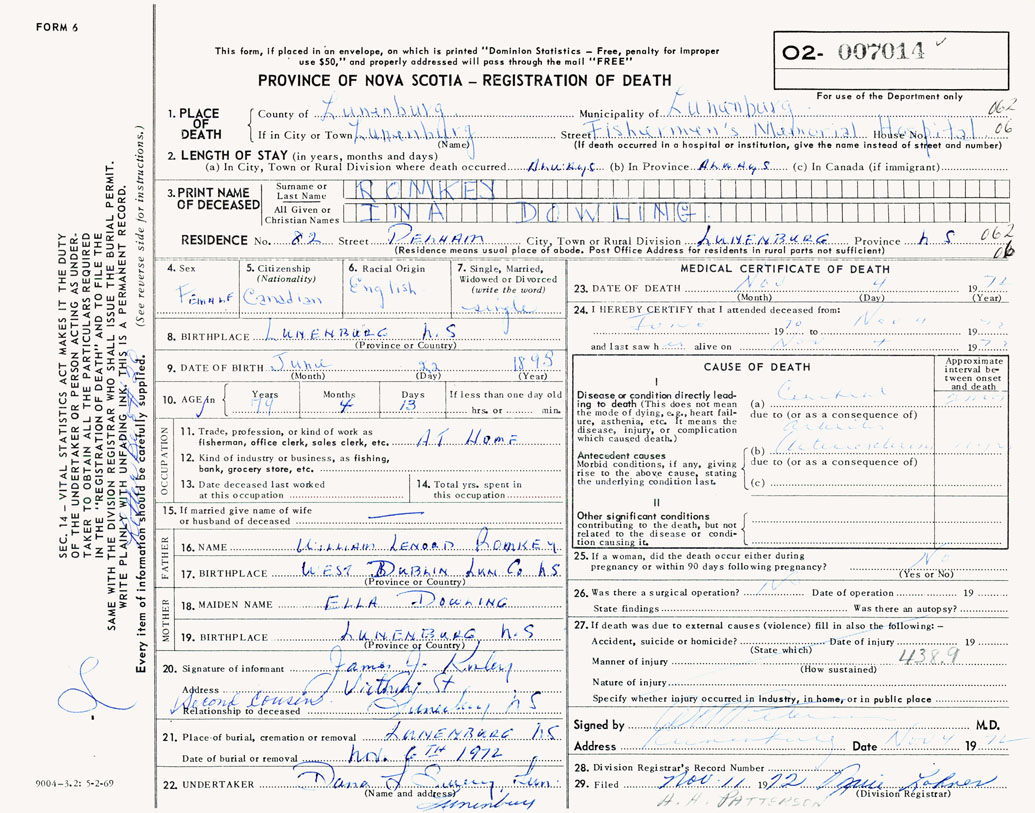 FORM 6
This form, if placed in an envelope, on which is printed "Dominion Statistics – Free, penalty for improper
use $50," and properly addressed will pass through the mail "FREE"
PROVINCE OF NOVA SCOTIA – REGISTRATION OF DEATH
O2- 007014
For use of the Department only
1. PLACE OF DEATH
County of Lunenburg Municipality of Lunenburg 062
If in City or Town Lunenburg Street Fishermen's Memorial House No. Hospital 06
(Name) (If death occurred in a hospital or institution, give the name instead of street and number)
2. LENGTH OF STAY (in years, months and days)
(a) In City, Town or Rural Division where death occurred Always (b) In Province Always (c) In Canada (if immigrant)
3. PRINT NAME OF DECEASED
Surname or Last Name ROMKEY
All Given or Christian Names INA DOWLING
RESIDENCE No. 82 Street DENHAM City, Town or Rural Division LUNENBURG Province N S 062
(Residence means usual place of abode. Post Office Address for residents in rural parts not sufficient) 06
4. Sex
Female
5. Citizenship
(Nationality)
Canadian
6. Racial Origin
English
7. Single, Married,
Widowed or Divorced
(write the word)
single
8. BIRTHPLACE LUNENBURG N.S
(Province or Country)
9. DATE OF BIRTH June 22 1895
(Month) (Day) (Year)
10. AGE in
Years
Months 4
Days 13
If less than one day old
hrs. or min.
OCCUPATION
11. Trade, profession, or kind of work as
fisherman, office clerk, sales clerk, etc. AT HOME
12. Kind of industry or business, as fishing,
bank, grocery store, etc.
13. Date deceased last worked
at this occupation
14. Total yrs. spent in
this occupation
15. If married give name of wife
or husband of deceased
FATHER
16. NAME WILLIAM LENORD ROMKEY
17. BIRTHPLACE WEST DUBLIN LUN CO NS
(Province or Country)
MOTHER
18. MAIDEN NAME ELLA DOWLING
19. BIRTHPLACE LUNENBURG, N.S
(Province or Country)
20. Signature of informant James J.
Address Victoria St
Second Cousin
Relationship to deceased Lunenburg NS
21. Place of burial, cremation or removal LUNENBURG NS
Date of burial or removal Nov. 6TH 1972
22. UNDERTAKER Dana L Sweeny
(Name and address)
Lunenburg
MEDICAL CERTIFICATE OF DEATH
23. DATE OF DEATH Nov 4 1972
(Month) (Day) (Year)
24. I HEREBY CERTIFY that I attended deceased from:
June 1970 to Nov 4 1972
and last saw her alive on Nov 4 1972
CAUSE OF DEATH
Approximate
interval be-
tween onset
and death
I
Disease or condition directly lead-
ing to death (This does not mean
the mode of dying, e.g., heart fail-
ure, asthenia, etc. It means the
disease, injury, or complication
which caused death.)
(a) Cerebral
due to (or as a consequence of)
Antecedent causes
Morbid conditions, if any, giving
rise to the above cause, stating
the underlying condition last.
(b)
due to (or as a consequence of)
(c)
II
Other significant conditions
contributing to the death, but not
related to the disease or condi-
tion causing it.
25. If a woman, did the death occur either during
pregnancy or within 90 days following pregnancy? No
(Yes or No)
26. Was there a surgical operation? Date of operation 19
State findings Was there an autopsy?
27. If death was due to external causes (violence) fill in also the following: –
Accident, suicide or homicide? Date of injury 19
(State which)
Manner of injury 438.9
(How sustained)
Nature of injury
Specify whether injury occurred in industry, in home, or in public place
Signed by M.D.
Address Lunenburg Date Nov 4 1972
28. Division Registrar's Record Number
29. Filed Nov. 11 1972
(Division Registrar)
H. H. PATTERSON
SEC. 14 – VITAL STATISTICS ACT MAKES IT THE DUTY
OF THE UNDERTAKER OR PERSON ACTING AS UNDER-
TAKER TO OBTAIN ALL THE PARTICULARS REQUIRED
IN THE "REGISTRATION OF DEATH" AND TO FILE THE
SAME WITH THE DIVISION REGISTRAR WHO SHALL ISSUE THE BURIAL PERMIT.
WRITE PLAINLY WITH UNFADING INK. THIS IS A PERMANENT RECORD.
Every item of information should be carefully supplied. (See reverse side for instructions.)
9004-3.2: 5-2-69